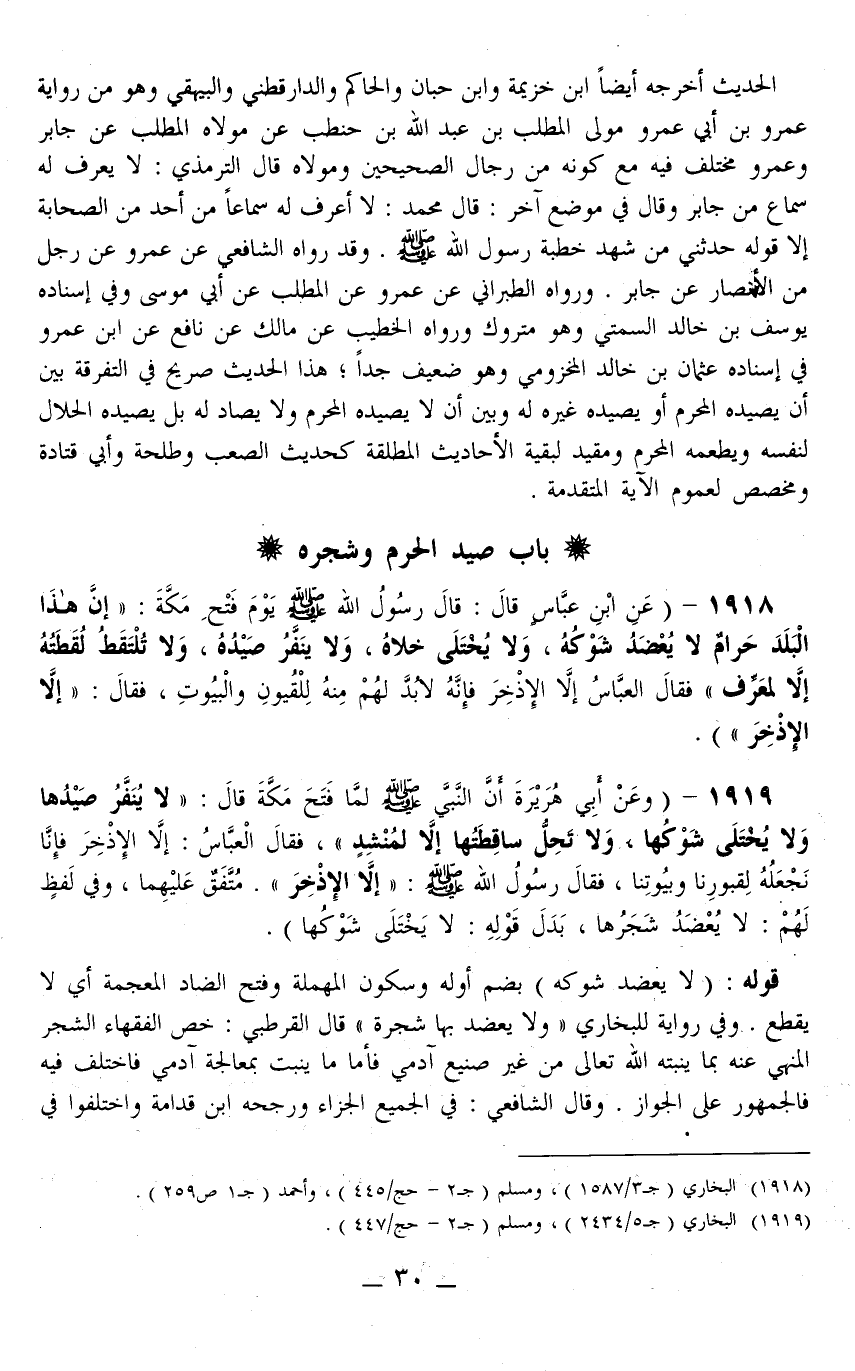 الحديث أخرجه أيضاً ابن خزيمة وابن حبان والحاكم والدارقطني والبيهقي وهو من رواية
عمرو بن أبي عمرو مولى المطلب بن عبد الله بن حنطب عن مولاه المطلب عن جابر
وعمرو مختلف فيه مع كونه من رجال الصحيحين ومولاه قال الترمذي : لا يعرف له
سماع من جابر وقال في موضع آخر : قال محمد : لا أعرف له سماعاً من أحد من الصحابة
إلا قوله حدثني من شهد خطبة رسول الله ﷺ . وقد رواه الشافعي عن عمرو عن رجل
من الأنصار عن جابر . ورواه الطبراني عن عمرو عن المطلب عن أبي موسى وفي إسناده
يوسف بن خالد السمتي وهو متروك ورواه الخطيب عن مالك عن نافع عن ابن عمرو
في إسناده عثمان بن خالد المخزومي وهو ضعيف جداً ؛ هذا الحديث صريح في التفرقة بين
أن يصيده المحرم أو يصيده غيره له وبين أن لا يصيده المحرم ولا يصاد له بل يصيده الحلال
لنفسه ويطعمه المحرم ومقيد لبقية الأحاديث المطلقة كحديث الصعب وطلحة وأبي قتادة
ومخصص لعموم الآية المتقدمة .
✹ باب صيد الحرم وشجره ✹
١٩١٨ – ( عَنِ ابْنِ عبَّاسٍ قالَ : قالَ رسُولُ الله ﷺ يَوْمَ فَتْحِ مَكَّةَ : « إنَّ هٰذَا
الْبَلَدَ حَرامٌ لا يُعْضَدُ شَوْكُهُ ، وَلا يُخْتَلَى خلاهُ ، وَلا ينَفَّرُ صَيْدُهُ ، وَلا تُلْتَقطُ لُقَطَتُهُ
إلَّا لمعَرِّف » فقالَ العبَّاسُ إلَّا الإذْخِرَ فإنَّهُ لابُدَّ لهُمْ مِنهُ لِلْقُيونِ والْبيُوتِ ، فقالَ : « إلَّا
الإذْخِرَ » ) .
١٩١٩ – ( وعَنْ أبي هُرَيْرَةَ أنَّ النَّبيَّ ﷺ لمَّا فَتَحَ مَكَّةَ قالَ : « لا يُنَفَّرُ صَيْدُها
وَلا يُخْتَلَى شوْكُها ، وَلا تَحِلُّ ساقِطَتُها إلَّا لمُنْشِدٍ » ، فقالَ الْعبَّاسُ : إلَّا الإذْخِرَ فإنَّا
نَجْعَلُهُ لِقبورِنا وبيُوتِنا ، فقالَ رسُولُ الله ﷺ : « إلَّا الإذْخِرَ » . مُتَّفَقٌ عَليْهِما ، وفي لَفظٍ
لَهُمْ : لا يُعْضَدُ شَجَرُها ، بَدَل قَوْلِهِ : لا يَخْتَلَى شَوْكُها ) .
قوله : ( لا يعضد شوكه ) بضم أوله وسكون المهملة وفتح الضاد المعجمة أي لا
يقطع . وفي رواية للبخاري « ولا يعضد بها شجرة » قال القرطبي : خص الفقهاء الشجر
المنهي عنه بما ينبته الله تعالى من غير صنيع آدمي فأما ما ينبت بمعالجة آدمي فاختلف فيه
فالجمهور على الجواز . وقال الشافعي : في الجميع الجزاء ورجحه ابن قدامة واختلفوا في
(١٩١٨) البخاري ( جـ٣/١٥٨٧ ) ، ومسلم ( جـ٢ – حج/٤٤٥ ) ، وأحمد ( جـ١ ص٢٥٩ ) .
(١٩١٩) البخاري ( جـ٥/٢٤٣٤ ) ، ومسلم ( جـ٢ – حج/٤٤٧ ) .
– ٣٠ –